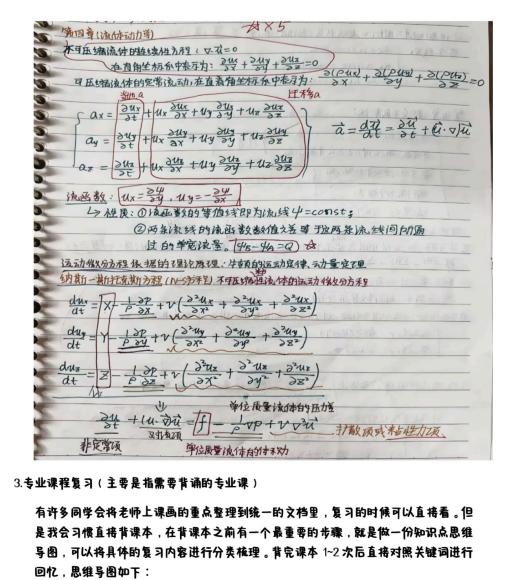 第四章(流体动力学) ☆×5
不可压缩流体的连续性方程：∇·u⃗=0
在直角坐标系中表示为：∂ux/∂x+∂uy/∂y+∂uz/∂z=0
可压缩流体的定常流动,在直角坐标系中表示为：∂(ρux)/∂x+∂(ρuy)/∂y+∂(ρuz)/∂z=0
当地a 迁移a
ax=∂ux/∂t+ux ∂ux/∂x+uy ∂ux/∂y+uz ∂ux/∂z
ay=∂uy/∂t+ux ∂uy/∂x+uy ∂uy/∂y+uz ∂uy/∂z
az=∂uz/∂t+ux ∂uz/∂x+uy ∂uz/∂y+uz ∂uz/∂z
a⃗=du⃗/dt=∂u⃗/∂t+(u⃗·∇)u⃗
流函数：ux=∂ψ/∂y, uy=-∂ψ/∂x
↳性质：①流函数的等值线即为流线ψ=const；
②两条流线的流函数数值之差等于这两条流线间所通
过的单宽流量。|ψB-ψA=Q| ☆
运动微分方程依据的理论原理：牛顿的运动定律、动量定理
纳斯一斯托克斯方程(N-S方程) 不可压缩粘性流体的运动微分方程
dux/dt=X-1/ρ ∂p/∂x+ν(∂²ux/∂x²+∂²ux/∂y²+∂²ux/∂z²)
duy/dt=Y-1/ρ ∂p/∂y+ν(∂²uy/∂x²+∂²uy/∂y²+∂²uy/∂z²)
duz/dt=Z-1/ρ ∂p/∂z+ν(∂²uz/∂x²+∂²uz/∂y²+∂²uz/∂z²)
单位质量流体的压力差
∂u⃗/∂t+(u·∇)u⃗=f-1/ρ ∇p+ν∇²u⃗ 扩散项或粘性力项
非定常项 对流项 单位质量流体的体积力
3.专业课程复习（主要是指需要背诵的专业课）
有许多同学会将老师上课画的重点整理到统一的文档里，复习的时候可以直接看。但
是我会习惯直接背课本，在背课本之前有一个最重要的步骤，就是做一份知识点思维
导图，可以将具体的复习内容进行分类梳理。背完课本 1-2 次后直接对照关键词进行
回忆，思维导图如下：